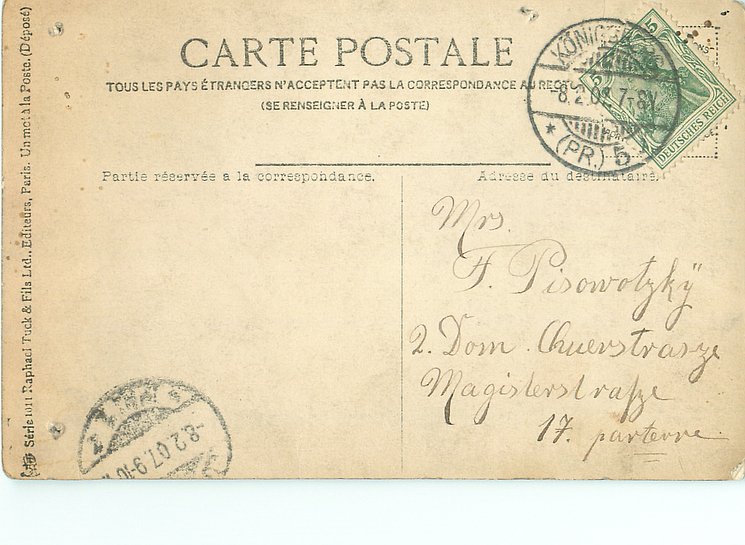 CARTE POSTALE
TOUS LES PAYS ÉTRANGERS N'ACCEPTENT PAS LA CORRESPONDANCE AU RECTO
(SE RENSEIGNER À LA POSTE)
Partie réservée a la correspondance.
Adresse du destinataire.
Mrs.
F. Pisowotzky
2. Dom. Querstrasze
Magisterstrasze
17. parterre.
Série 1011 Raphael Tuck & Fils Ltd., Editeurs, Paris. Un mot à la Poste. (Déposé)
5
DEUTSCHES REICH
8.2.07.7-8V.
★ (PR.) 5
-8.2.07.9-10